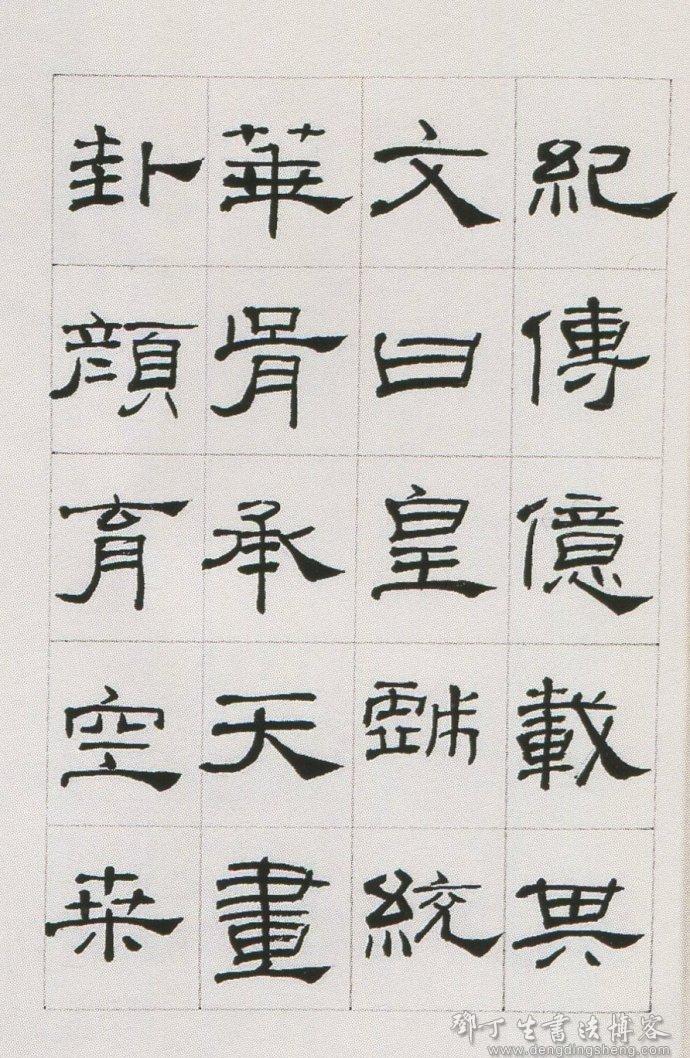 紀傳億載其
文曰皇戲統
華胥承天畫
卦顏育空桒
鄧丁生書法博客
www.dengdingsheng.com